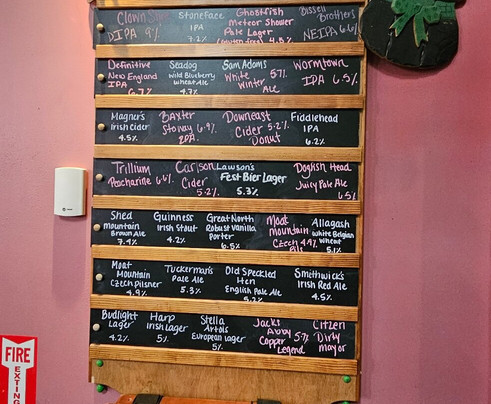 Clown
DIPA 9%
StoneFace
IPA
7.2%
Ghostfish
Meteor Shower
Pale Lager
(Gluten free) 4.5%
Bissell
Brothers
NEIPA 6.6%
Definitive
New England
IPA
6.7%
Seadog
Wild Blueberry
Wheat Ale
4.7%
Sam Adams
White 5%
Winter
Ale
Wormtown
IPA 6.5%
Magner's
Irish Cider
4.5%
BAXTER
Stowaway 6.9%
IPA
Downeast
Cider 5.2%
Donut
Fiddlehead
IPA
6.2%
Trillium
Peacharine 6.6%
Carlson
Cider
5.2%
Lawson's
Fest Bier Lager
5.3%
Dogfish Head
Juicy Pale Ale
6.5%
Shed
Mountain
Brown Ale
7.4%
Guinness
Irish Stout
4.2%
Great North
Robust Vanilla
Porter
6.5%
Moat
Mountain
Czech 4.9%
Pils
Allagash
White Belgian
Wheat
5.1%
Moat
Mountain
Czech Pilsner
4.9%
Tuckerman's
Pale Ale
5.3%
Old Speckled
Hen
English Pale Ale
5.2%
Smithwick's
Irish Red Ale
4.5%
Budlight
Lager
4.2%
Harp
Irish Lager
5%
Stella
Artois
European Lager
5%
Jack's
Abby 5.7%
Copper
Legend
Citizen
Dirty
Mayor
FIRE
EXTING